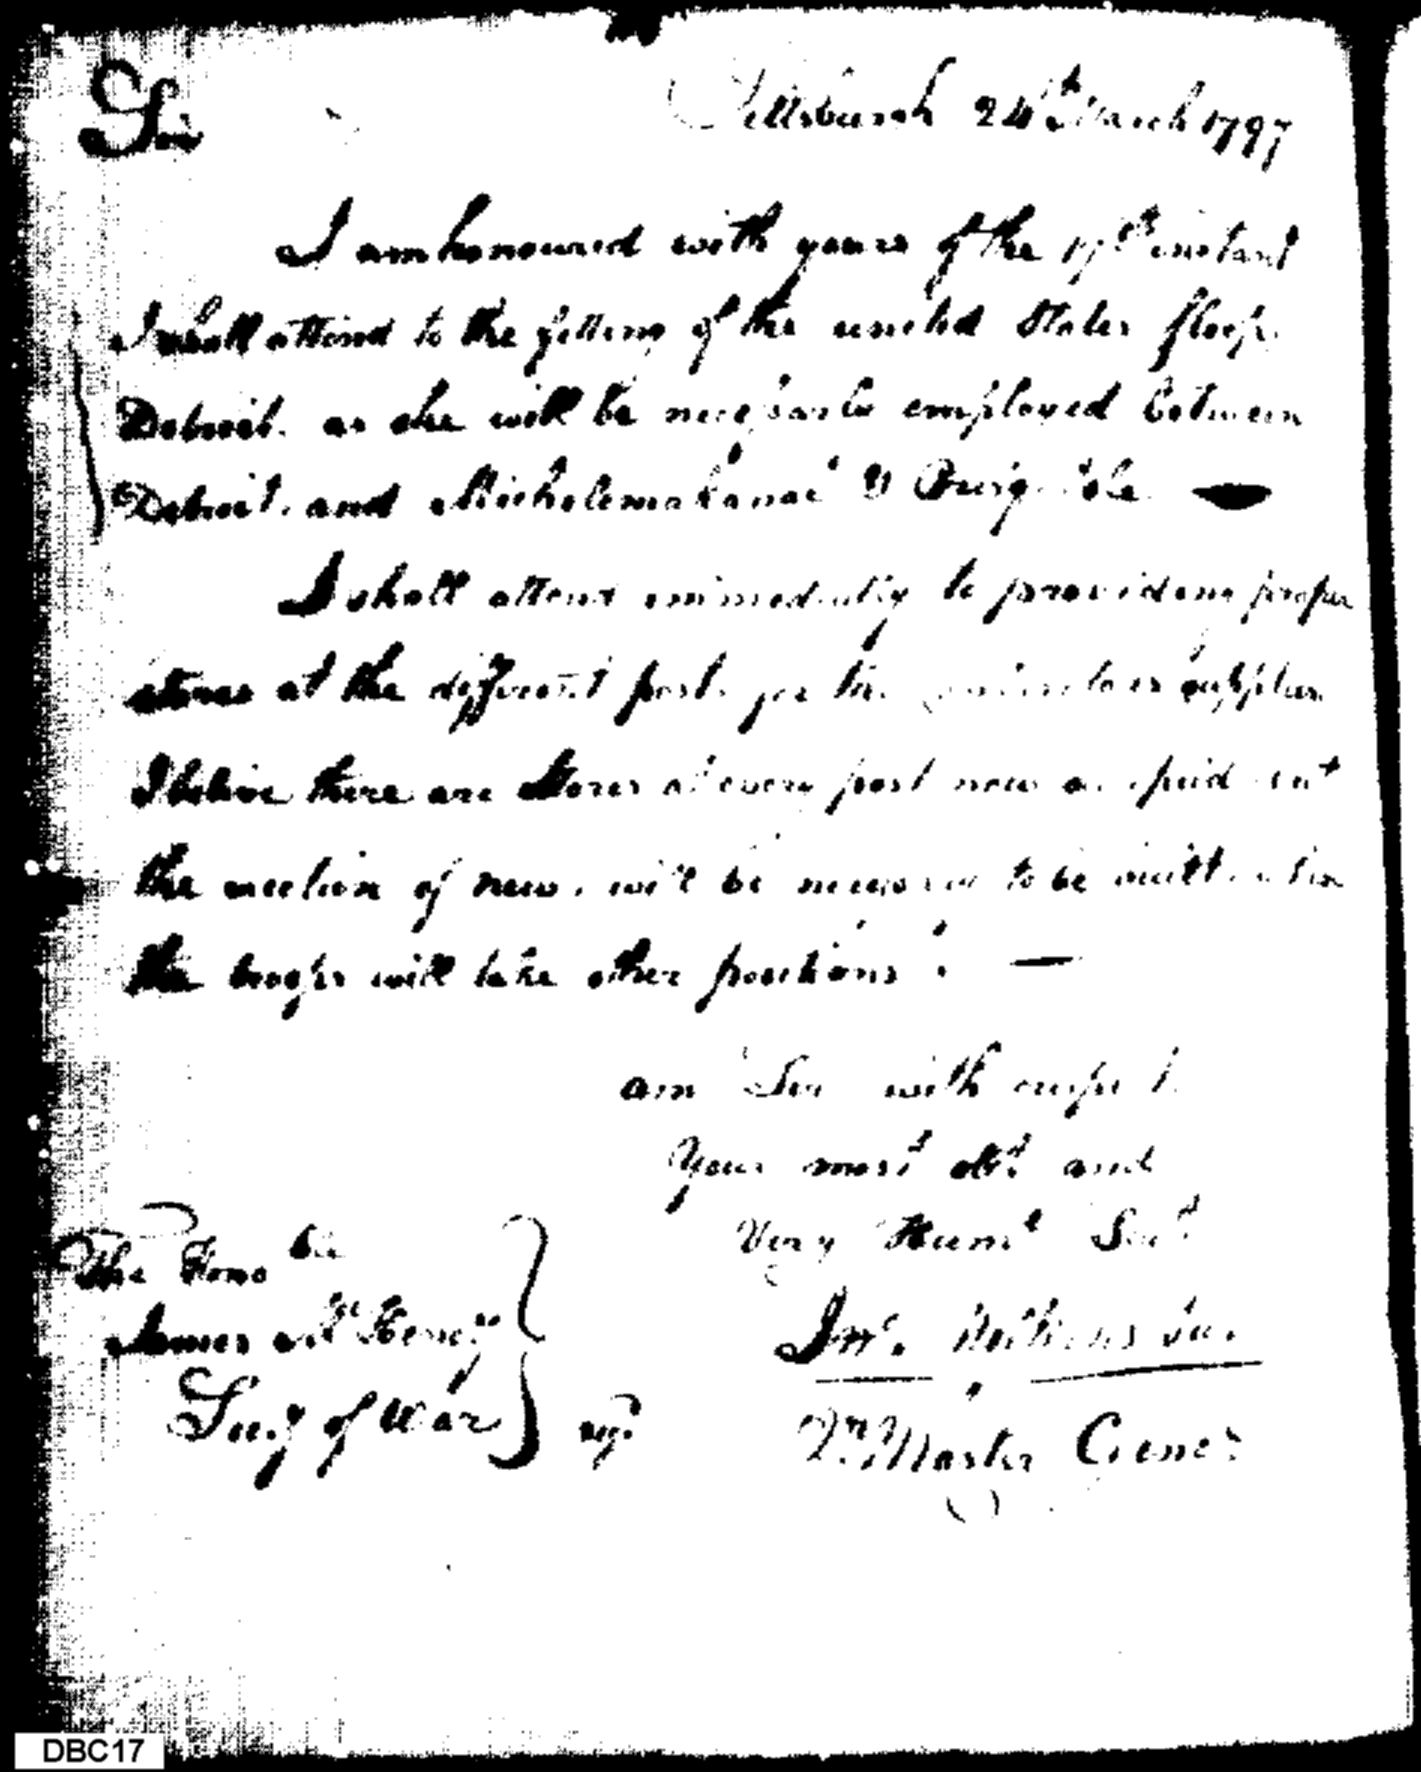 Sir
Pittsburgh 24th March 1797
I am honoured with yours of the 17th instant
I shall attend to the fitting of the united States Sloop
Detroit. as she will be necessarily employed between
Detroit. and Michelemakanac & Presq. Isle
I shall attend immediately to providing proper
stores at the different posts for the contractors supplies
I believe there are Stores at every post now occupied but
the erection of new will be necessary to be built when
the troops will take other positions. —
am Sir with respect
Your most obt. and
Very Humle Servt
The Honoble
James McHenry
Secy of War
Jno. Wilkins Jur.
Qr. Master Genel